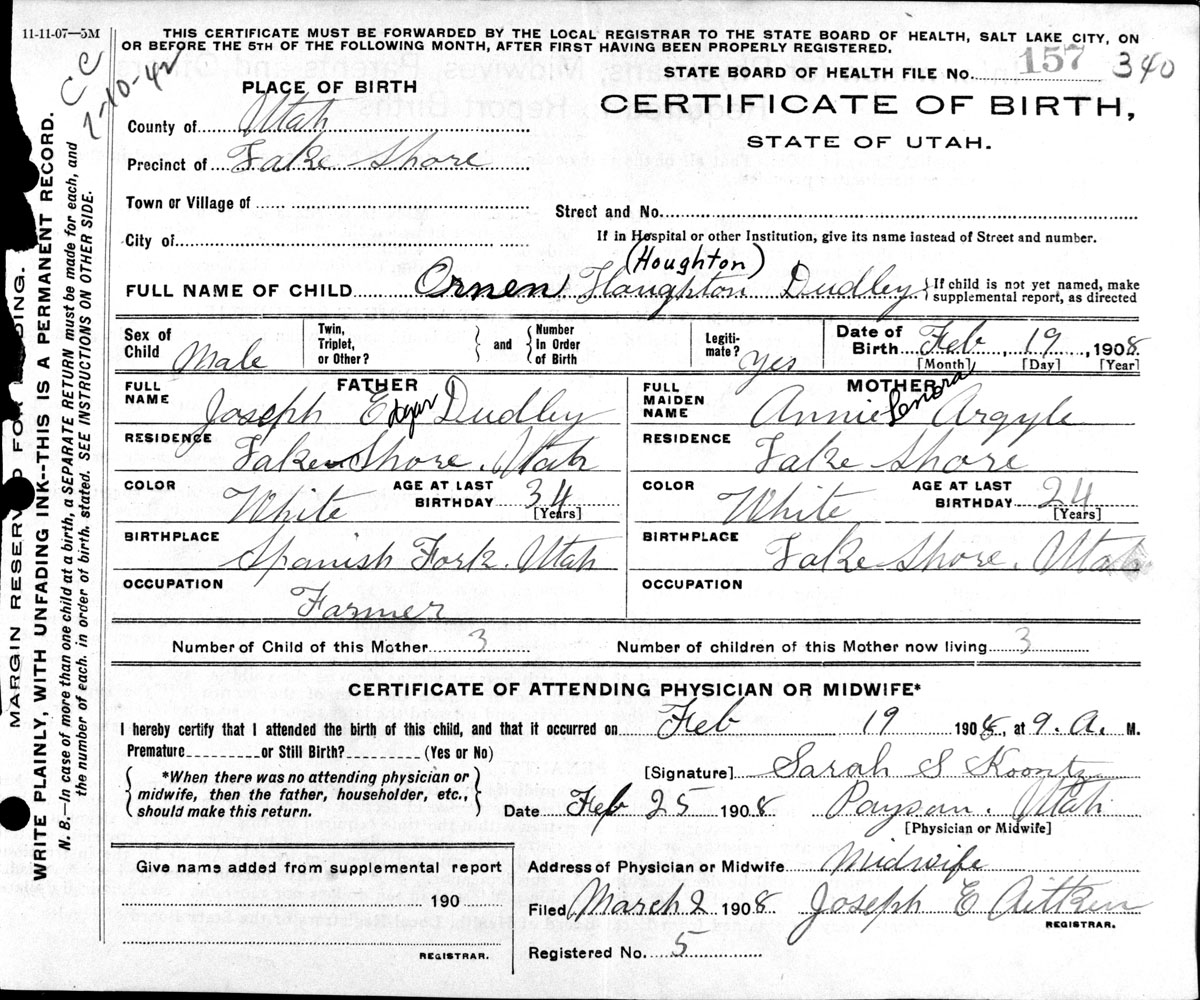 11-11-07—5M
THIS CERTIFICATE MUST BE FORWARDED BY THE LOCAL REGISTRAR TO THE STATE BOARD OF HEALTH, SALT LAKE CITY, ON
OR BEFORE THE 5TH OF THE FOLLOWING MONTH, AFTER FIRST HAVING BEEN PROPERLY REGISTERED.
CC
7-10-42
STATE BOARD OF HEALTH FILE No. 157 340
PLACE OF BIRTH
CERTIFICATE OF BIRTH,
STATE OF UTAH.
County of Utah
Precinct of Lake Shore
Town or Village of
Street and No.
City of
If in Hospital or other Institution, give its name instead of Street and number.
(Houghton)
FULL NAME OF CHILD Ornen Haughton Dudley {If child is not yet named, make
supplemental report, as directed
Sex of Child Male
Twin, Triplet, or Other? } and { Number In Order of Birth
Legiti-mate? Yes
Date of Birth Feb, 19, 1908
[Month] [Day] [Year]
FATHER
FULL NAME Joseph Edgar Dudley
MOTHER
FULL MAIDEN NAME Annie Lenora Argyle
RESIDENCE Lake Shore, Utah
RESIDENCE Lake Shore
COLOR White AGE AT LAST BIRTHDAY 34 [Years]
COLOR White AGE AT LAST BIRTHDAY 24 [Years]
BIRTHPLACE Spanish Fork, Utah
BIRTHPLACE Lake Shore, Utah
OCCUPATION Farmer
OCCUPATION
Number of Child of this Mother 3
Number of children of this Mother now living 3
CERTIFICATE OF ATTENDING PHYSICIAN OR MIDWIFE*
I hereby certify that I attended the birth of this child, and that it occurred on Feb 19 1908, at 9. A. M.
Premature or Still Birth? (Yes or No)
{*When there was no attending physician or
midwife, then the father, householder, etc.,
should make this return.}
[Signature] Sarah S Koontz
Date Feb 25 1908 Payson, Utah
[Physician or Midwife]
Give name added from supplemental report
190
REGISTRAR.
Address of Physician or Midwife Midwife
Filed March 2 1908 Joseph E Aitken
REGISTRAR.
Registered No. 5
MARGIN RESERVED FOR
DING.
WRITE PLAINLY, WITH UNFADING INK--THIS IS A PERMANENT RECORD.
N. B.—In case of more than one child at a birth, a SEPARATE RETURN must be made for each, and
the number of each, in order of birth, stated. SEE INSTRUCTIONS ON OTHER SIDE.